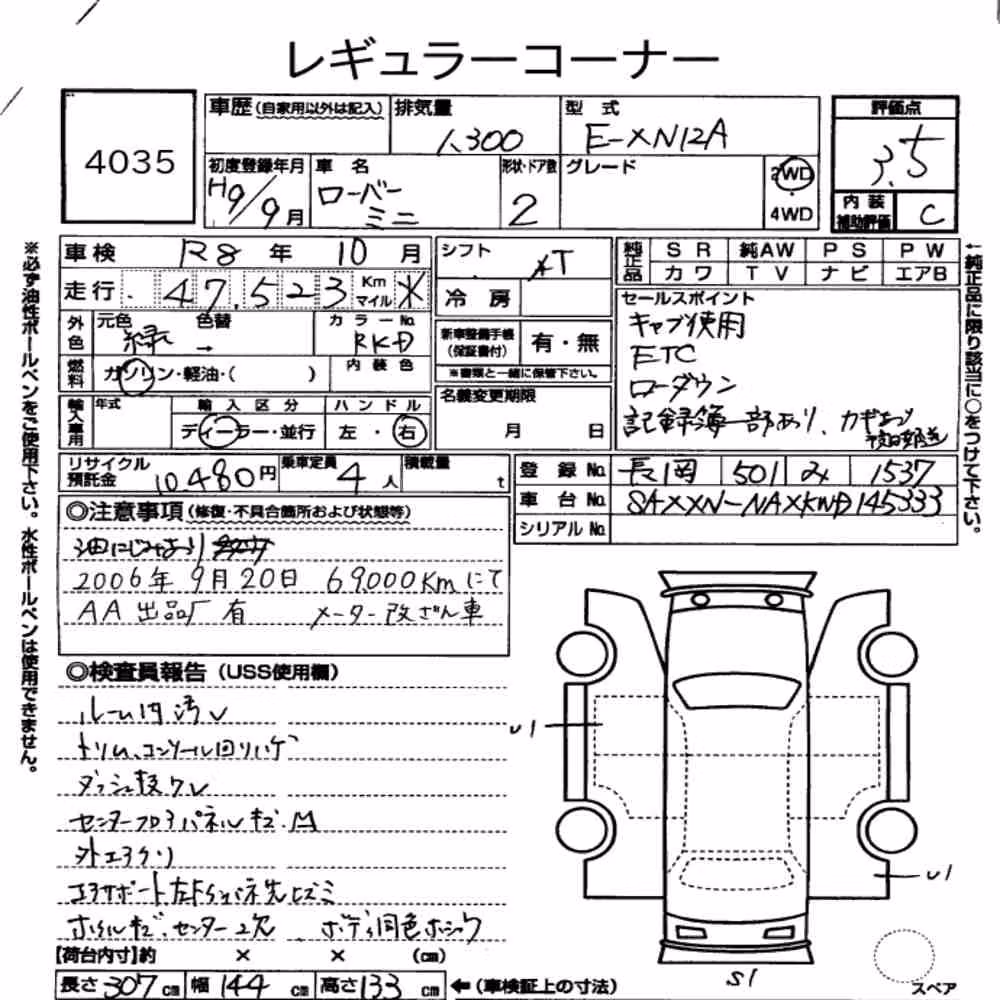 レギュラーコーナー
4035
車歴(自家用以外は記入) 排気量 1,300 型式 E-XN12A
初度登録年月 H9/9月 車名 ローバー ミニ 形状・ドア数 2 グレード 2WD・4WD
評価点 3.5
内装補助評価 C
車検 R8年10月
走行 47,523 Km マイル ※
外色 元色 緑 色替 → カラーNo. RKD
燃料 ガソリン・軽油・( ) 内装色
輸入車用 年式 輸入区分 ディーラー・並行 ハンドル 左・右
シフト AT
冷房
新車整備手帳(保証書付) 有・無
※書類と一緒に保管下さい。
名義変更期限 月 日
純正品 SR 純AW PS PW
カワ TV ナビ エアB
セールスポイント
キャブ使用
ETC
ローダウン
記録簿一部あり、カギ
リサイクル預託金 10,480円 乗車定員 4人 積載量 t
登録No. 長岡 501 み 1537
車台No. SAXXN-NAXKWD145333
シリアルNo.
◎注意事項(修復・不具合箇所および状態等)
油にじみあり
2006年9月20日 69000Kmにて
AA出品 有 メーター改ざん車
◎検査員報告(USS使用欄)
ルーム内汚レ
トリム、コンソール回りハゲ
ダッシュ
センターフロアパネルキズ M
外エクリ
コアサポート左 先ヒズミ
ホイルキズ、センター欠 ボディ同色ホシュウ
U1
U1
S1
スペア
[荷台内寸]約 × × (cm)
長さ307cm 幅144cm 高さ133cm ←(車検証上の寸法)
※必ず油性ボールペンをご使用下さい。水性ボールペンは使用できません。
←純正品に限り該当に○をつけて下さい。